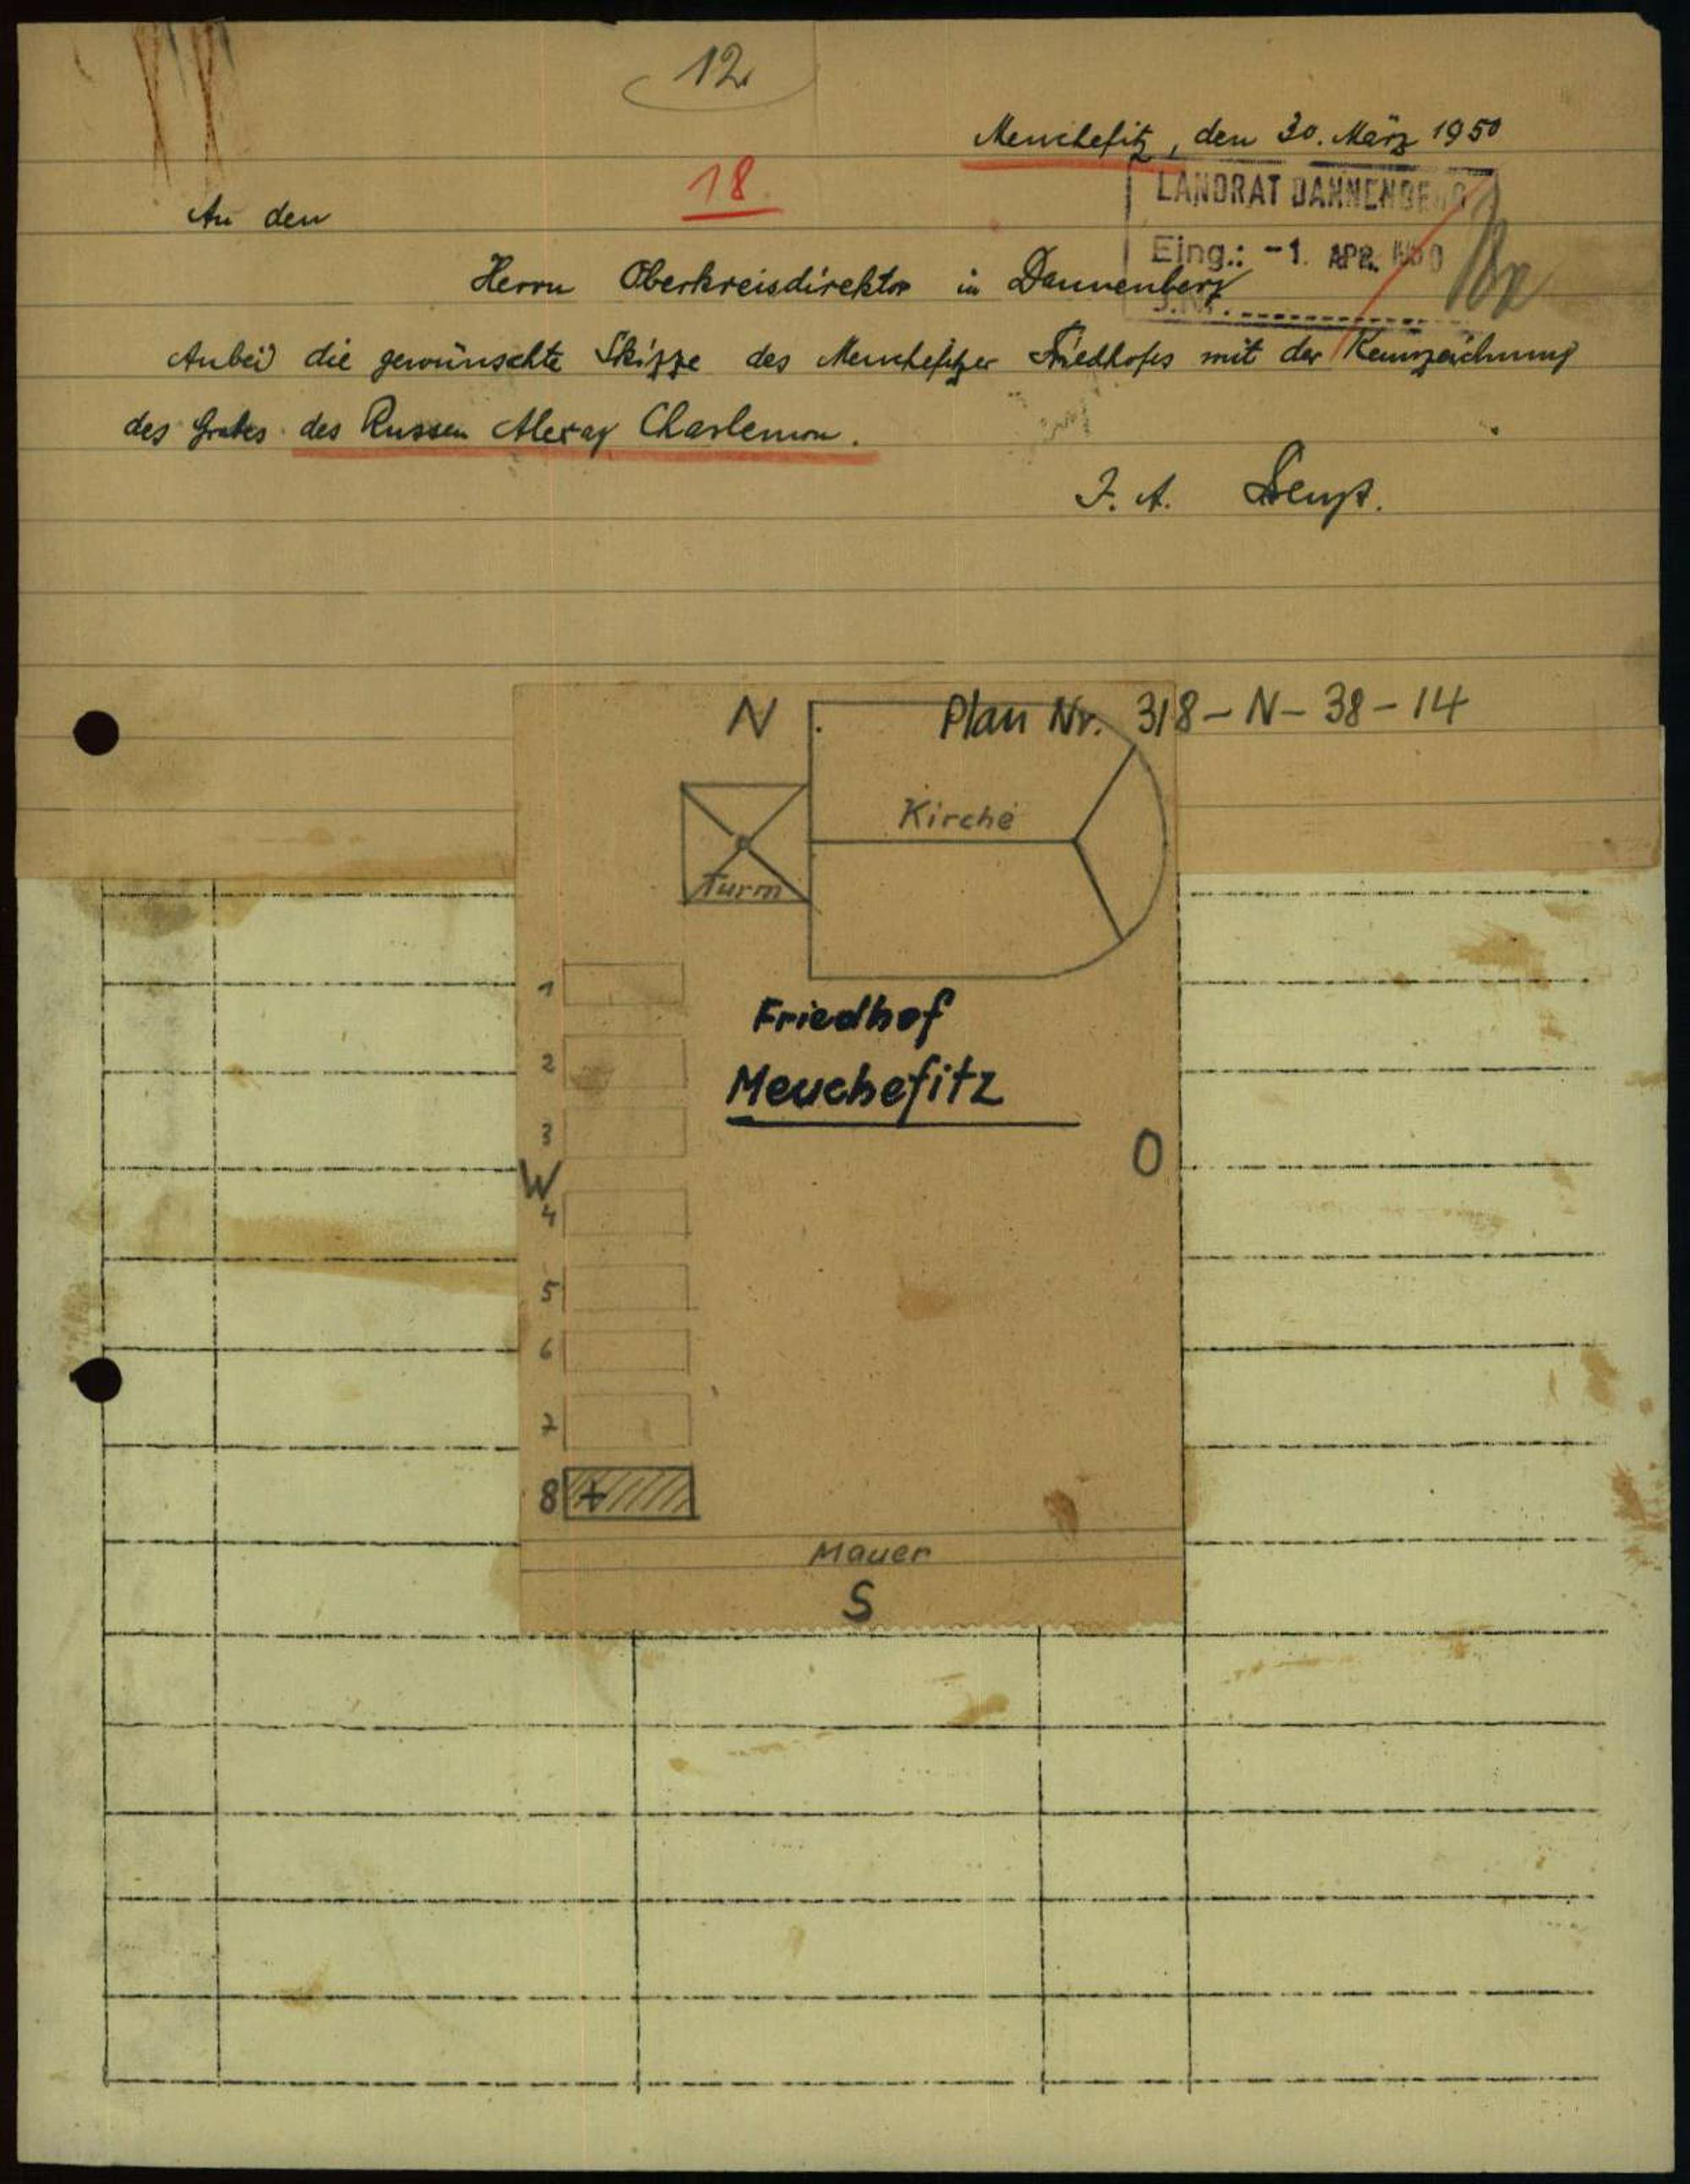 12
Meuchefitz, den 30. März 1950
18
LANDRAT DANNENBERG
An den
Eing.: -1. APR. 1950
Herrn Oberkreisdirektor in Dannenberg
J.Nr.
Anbei die gewünschte Skizze des Meuchefitzer Friedhofes mit der Kennzeichnung
des Grabes des Russen Alexay Charlemon.
I. A.
N
Plan Nr. 318-N-38-14
Kirche
Turm
1
Friedhof
2
Meuchefitz
3
W
O
4
5
6
7
8
Mauer
S